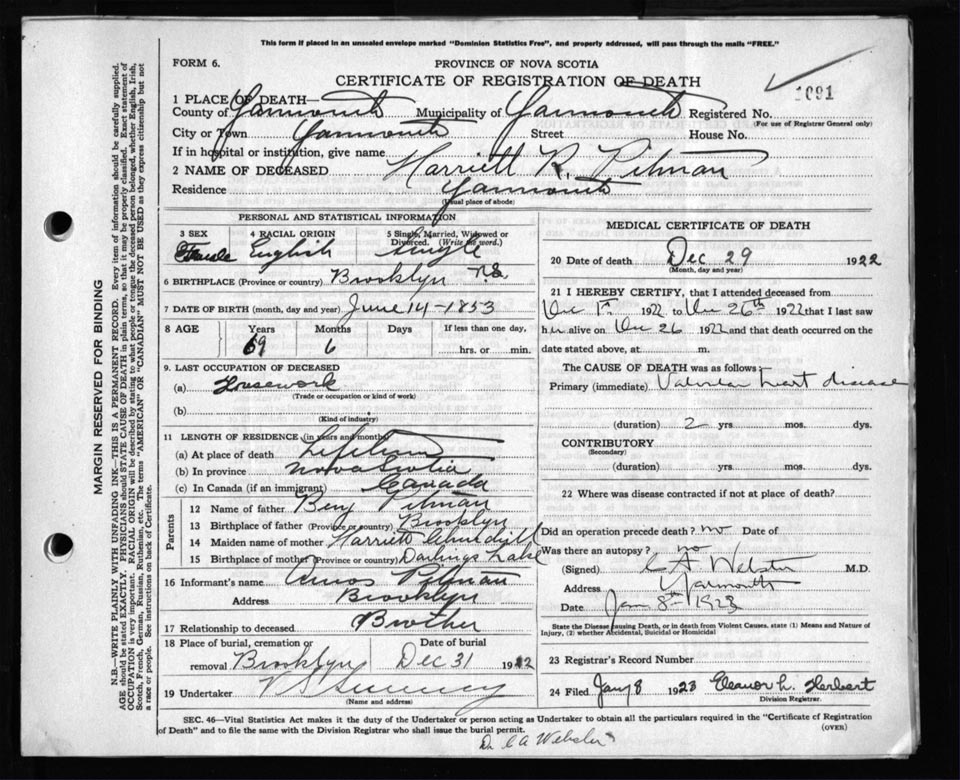 This form if placed in an unsealed envelope marked "Dominion Statistics Free", and properly addressed, will pass through the mails "FREE."
FORM 6.
PROVINCE OF NOVA SCOTIA
CERTIFICATE OF REGISTRATION OF DEATH
1091
1 PLACE OF DEATH—
County of Yarmouth Municipality of Yarmouth Registered No.
(For use of Registrar General only)
City or Town Yarmouth Street House No.
If in hospital or institution, give name
2 NAME OF DECEASED Harriett R. Pitman
Residence Yarmouth
(Usual place of abode)
PERSONAL AND STATISTICAL INFORMATION
3 SEX 4 RACIAL ORIGIN 5 Single, Married, Widowed or Divorced. (Write the word.)
Female English Single
6 BIRTHPLACE (Province or country) Brooklyn N.S.
7 DATE OF BIRTH (month, day and year) June 14-1853
8 AGE Years Months Days If less than one day,
69 6 hrs. or min.
9. LAST OCCUPATION OF DECEASED
(a) Housework
(Trade or occupation or kind of work)
(b)
(Kind of industry)
11 LENGTH OF RESIDENCE (in years and months)
(a) At place of death Lifetime
(b) In province Nova Scotia
(c) In Canada (if an immigrant) Canada
Parents
12 Name of father Benj Pitman
13 Birthplace of father (Province or country) Brooklyn
14 Maiden name of mother Harriett Churchill
15 Birthplace of mother (Province or country) Darlings Lake
16 Informant's name Amos Pitman
Address Brooklyn
17 Relationship to deceased Brother
18 Place of burial, cremation or removal Brooklyn Date of burial Dec 31 1922
19 Undertaker V S Sweeney
(Name and address)
MEDICAL CERTIFICATE OF DEATH
20 Date of death Dec 29 1922
(Month, day and year)
21 I HEREBY CERTIFY, that I attended deceased from
Dec 1st 1922 to Dec 26th 1922 that I last saw
her alive on Dec 26 1922 and that death occurred on the
date stated above, at m.
The CAUSE OF DEATH was as follows:
Primary (immediate) Valvular heart disease
(duration) 2 yrs. mos. dys.
CONTRIBUTORY
(Secondary)
(duration) yrs. mos. dys.
22 Where was disease contracted if not at place of death?
Did an operation precede death? no Date of
Was there an autopsy? no
(Signed) C A Webster M.D.
Address Yarmouth
Date Jan 8th 1923
State the Disease causing Death, or in death from Violent Causes, state (1) Means and Nature of Injury, (2) whether Accidental, Suicidal or Homicidal
23 Registrar's Record Number
24 Filed Jany 8 1923 Eleanor L. Herbert
Division Registrar.
SEC. 46—Vital Statistics Act makes it the duty of the Undertaker or person acting as Undertaker to obtain all the particulars required in the "Certificate of Registration
of Death" and to file the same with the Division Registrar who shall issue the burial permit. (OVER)
Dr. C A Webster
MARGIN RESERVED FOR BINDING
N.B.—WRITE PLAINLY WITH UNFADING INK—THIS IS A PERMANENT RECORD. Every item of information should be carefully supplied.
AGE should be stated EXACTLY. PHYSICIANS should STATE CAUSE OF DEATH in plain terms, so that it may be properly classified. Exact statement of
OCCUPATION is very important. RACIAL ORIGIN will be described by stating to what people or tongue the deceased person belonged, whether English, Irish,
Scotch, French, German, Russian, Ruthenian, etc. The terms "AMERICAN" OR "CANADIAN" MUST NOT BE USED as they express citizenship but not
a race or people. See instructions on back of Certificate.